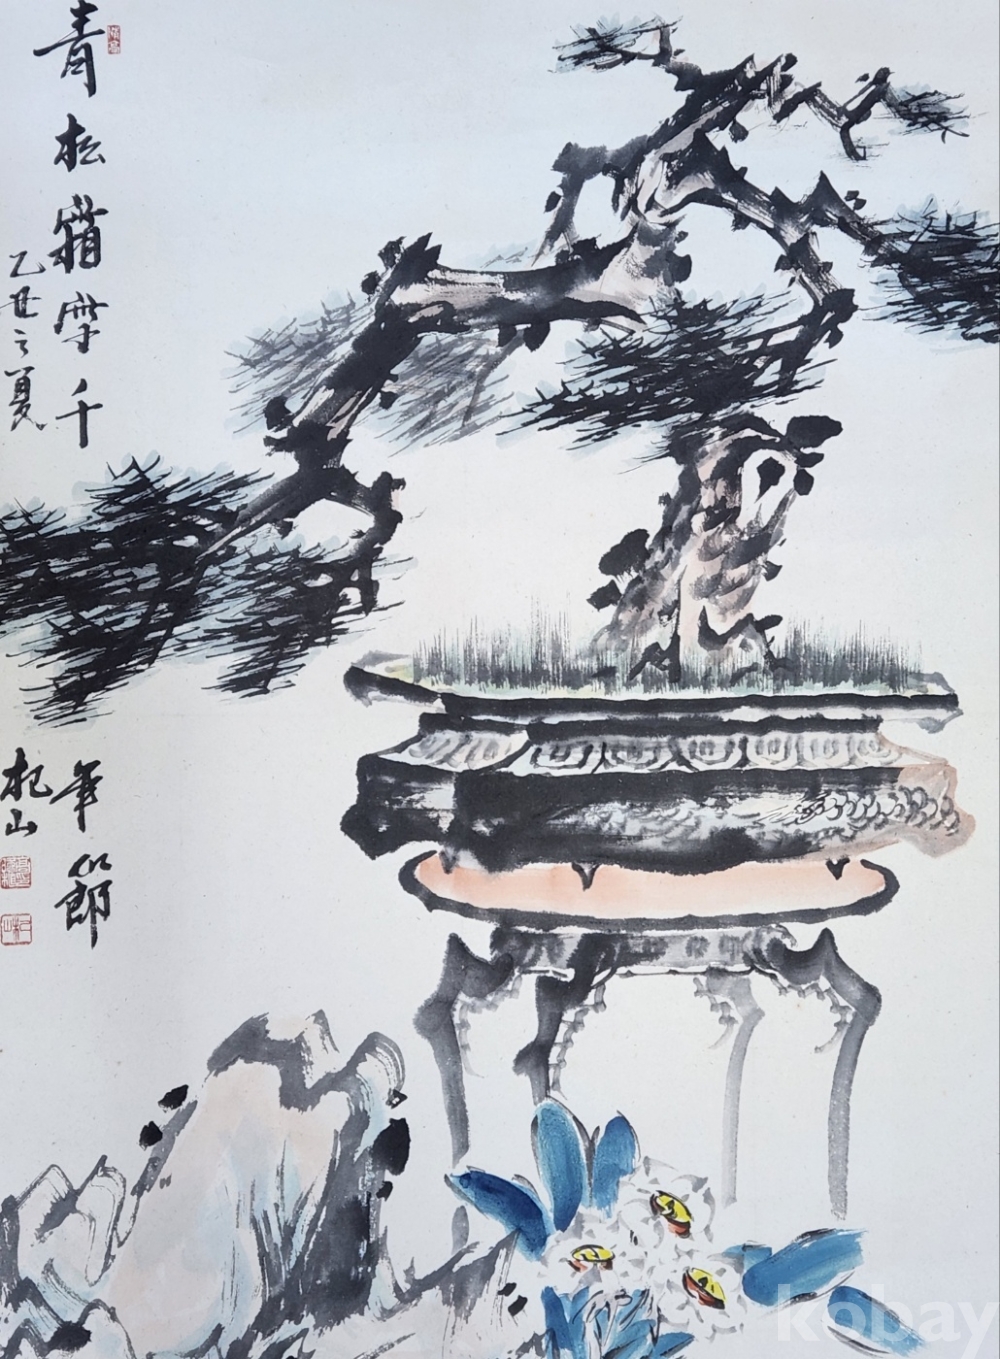 青松千年節
乙丑之夏
杞山
kobay